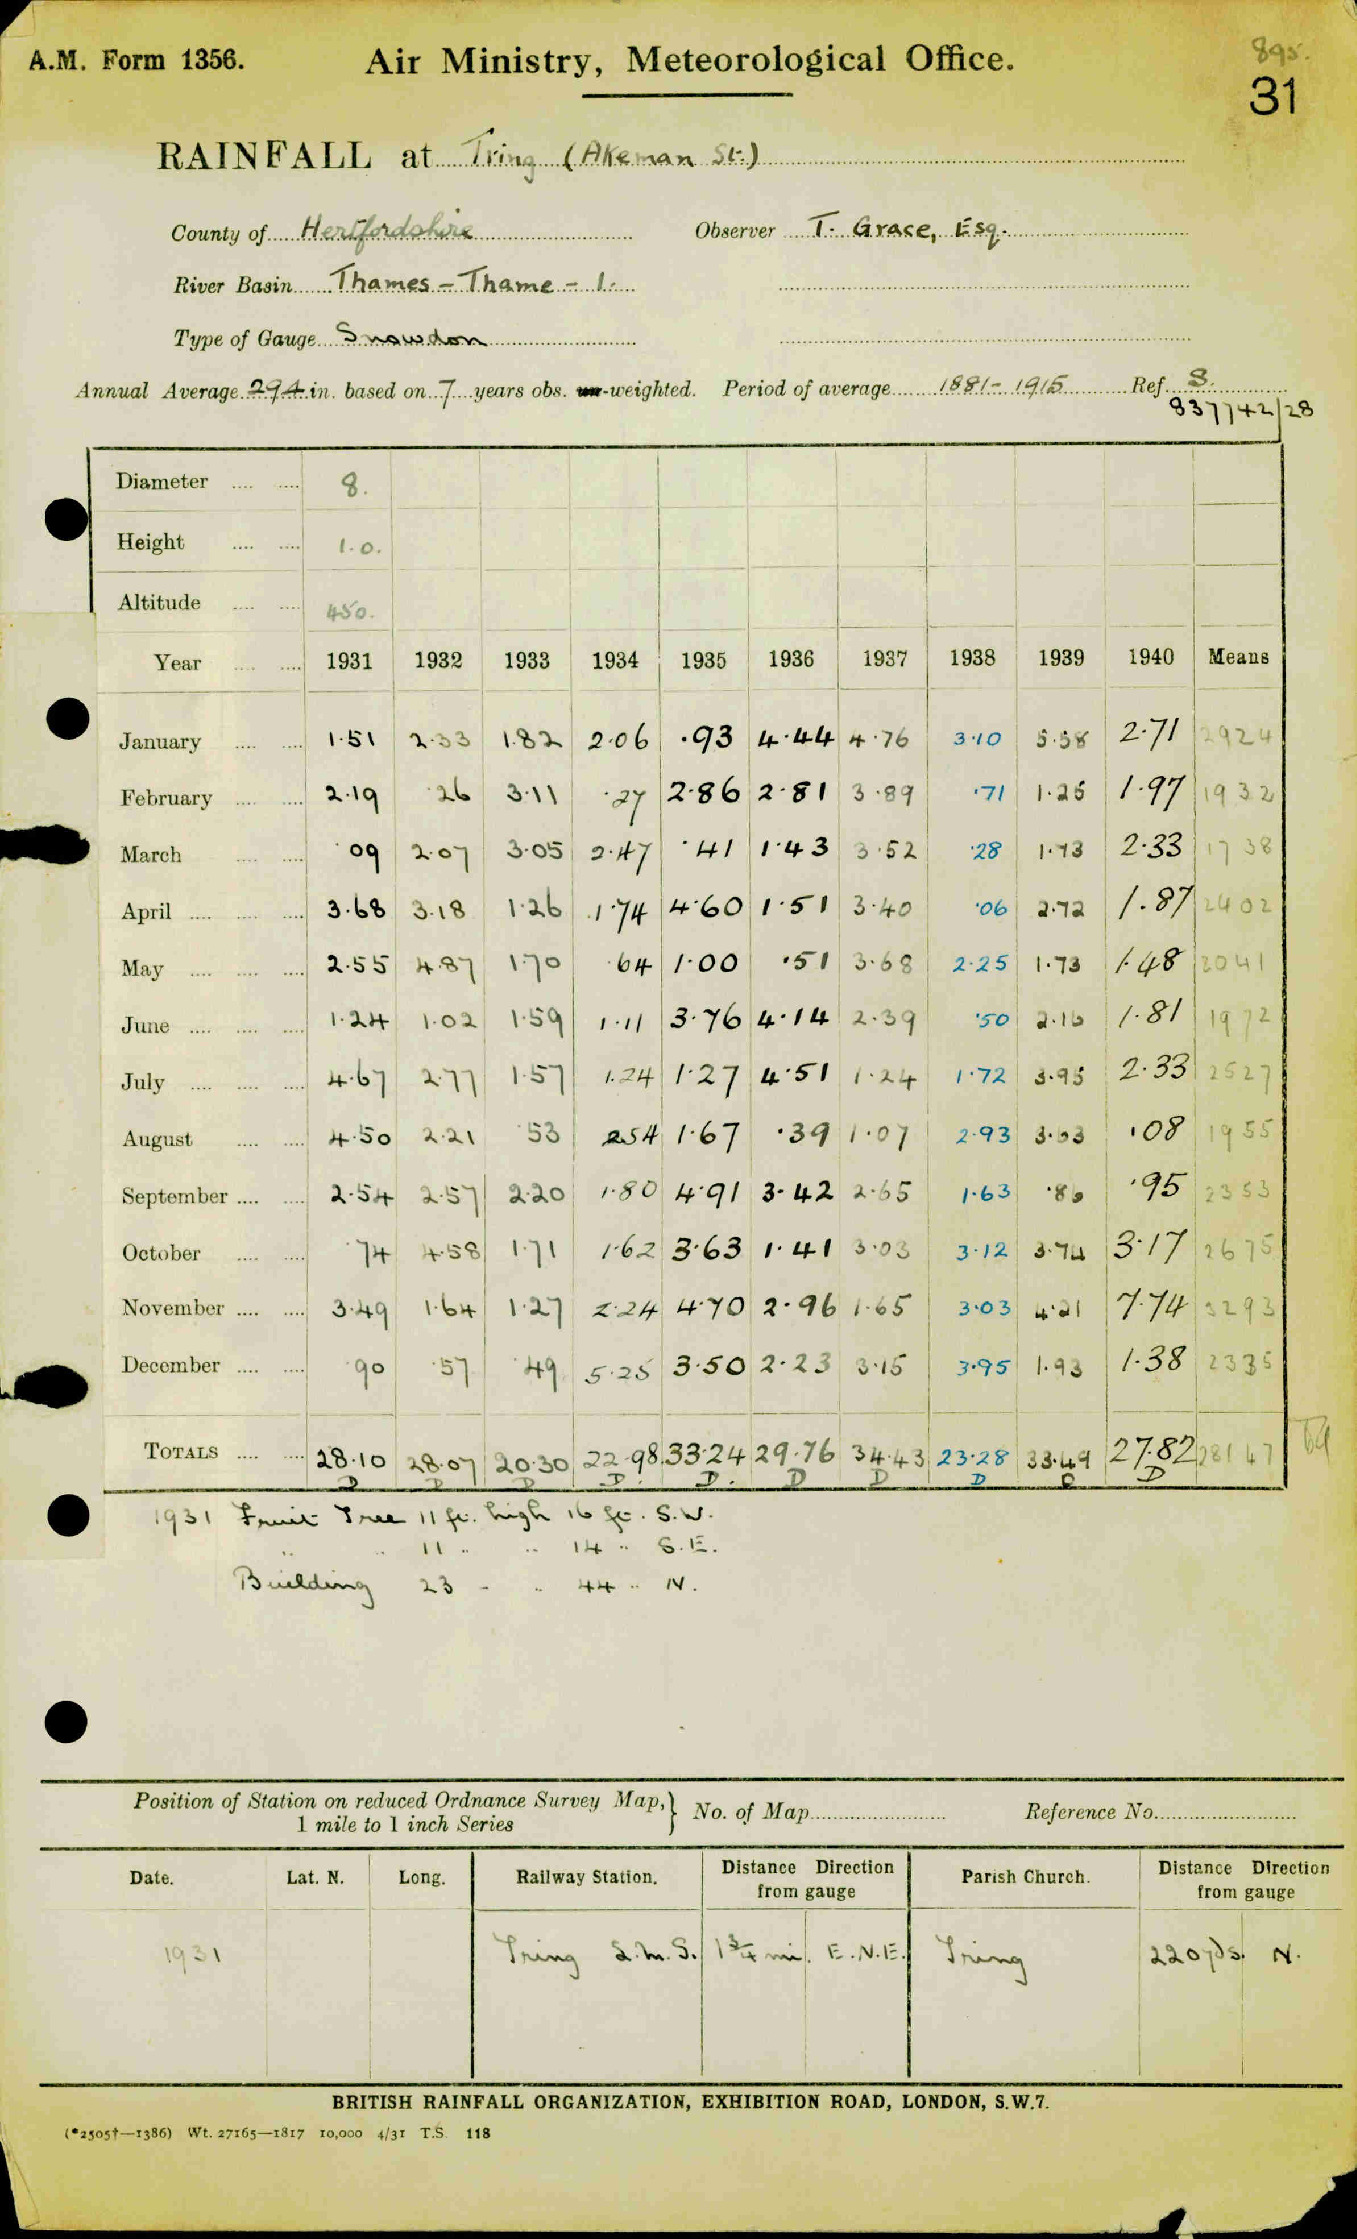 A.M. Form 1356.
Air Ministry, Meteorological Office.
895.
31
RAINFALL at Tring (Akeman St.)
County of Hertfordshire Observer T. Grace, Esq.
River Basin Thames - Thame - 1.
Type of Gauge Snowdon
Annual Average 29.4 in. based on 7 years obs. un-weighted. Period of average 1881-1915 Ref. S.
837742/28
Diameter 8.
Height 1.0.
Altitude 450.
Year 1931 1932 1933 1934 1935 1936 1937 1938 1939 1940 Means
January 1.51 2.33 1.82 2.06 .93 4.44 4.76 3.10 5.58 2.71 2924
February 2.19 .26 3.11 .27 2.86 2.81 3.89 .71 1.25 1.97 1932
March .09 2.07 3.05 2.47 .41 1.43 3.52 .28 1.73 2.33 1738
April 3.68 3.18 1.26 1.74 4.60 1.51 3.40 .06 2.72 1.87 2402
May 2.55 4.87 1.70 .64 1.00 .51 3.68 2.25 1.73 1.48 2041
June 1.24 1.02 1.59 1.11 3.76 4.14 2.39 .50 2.16 1.81 1972
July 4.67 2.77 1.57 1.24 1.27 4.51 1.24 1.72 3.95 2.33 2527
August 4.50 2.21 .53 2.54 1.67 .39 1.07 2.93 3.63 .08 1955
September 2.54 2.57 2.20 1.80 4.91 3.42 2.65 1.63 .86 .95 2353
October .74 4.58 1.71 1.62 3.63 1.41 3.03 3.12 3.74 3.17 2675
November 3.49 1.64 1.27 2.24 4.70 2.96 1.65 3.03 4.21 7.74 3293
December .90 .57 .49 5.25 3.50 2.23 3.15 3.95 1.93 1.38 2335
TOTALS 28.10 28.07 20.30 22.98 33.24 29.76 34.43 23.28 33.49 27.82 28147
D D D D. D. D D D D
1931 Fruit Tree 11 ft. high 16 ft. S.W.
" " 11 " " 14 " S.E.
Building 23 " " 44 " N.
Position of Station on reduced Ordnance Survey Map, 1 mile to 1 inch Series } No. of Map Reference No.
Date. Lat. N. Long. Railway Station. Distance Direction from gauge Parish Church. Distance Direction from gauge
1931 Tring L.M.S. 1¾ mi. E.N.E. Tring 220 yds. N.
BRITISH RAINFALL ORGANIZATION, EXHIBITION ROAD, LONDON, S.W.7.
(*2505†—1386) Wt. 27165—1817 10,000 4/31 T.S. 118